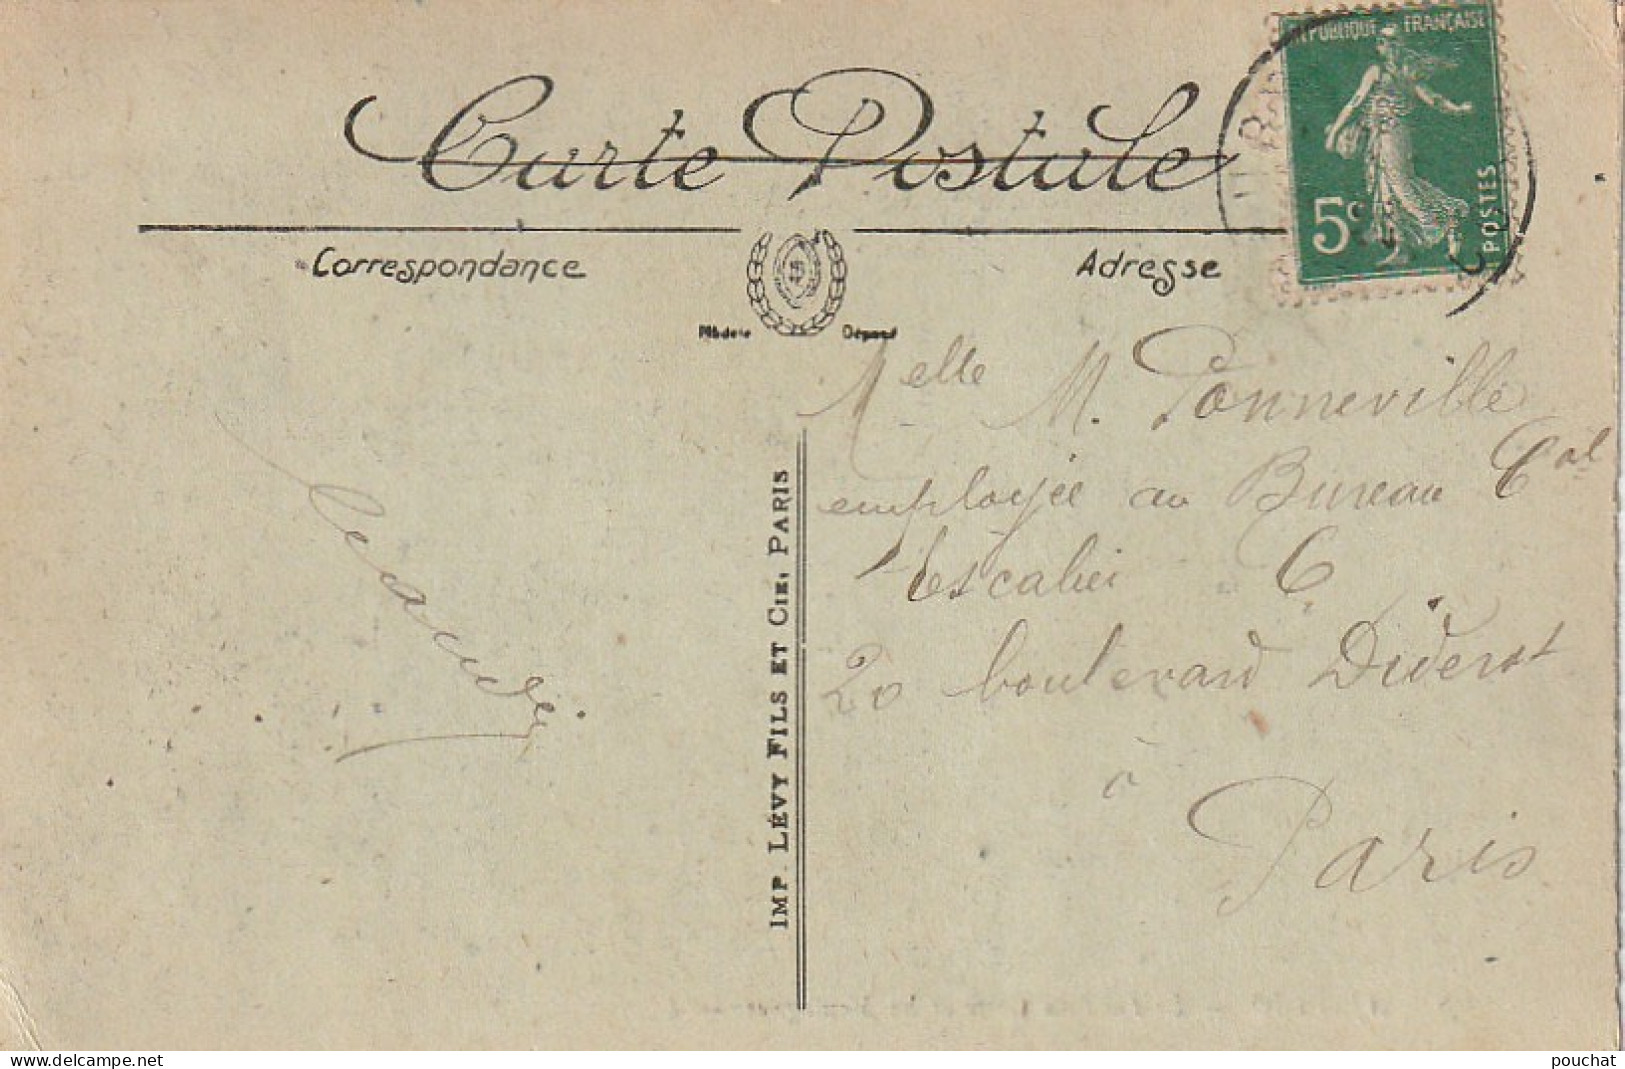 Carte Postale
RÉPUBLIQUE FRANÇAISE
5c
POSTES
Correspondance
Adresse
Modèle Déposé
Melle M. Ponneville
employée au Bureau Cal
Escalier C
20 boulevard Diderot
à
Paris
IMP. LÉVY FILS ET CIE, PARIS
delcampe.net
pouchat